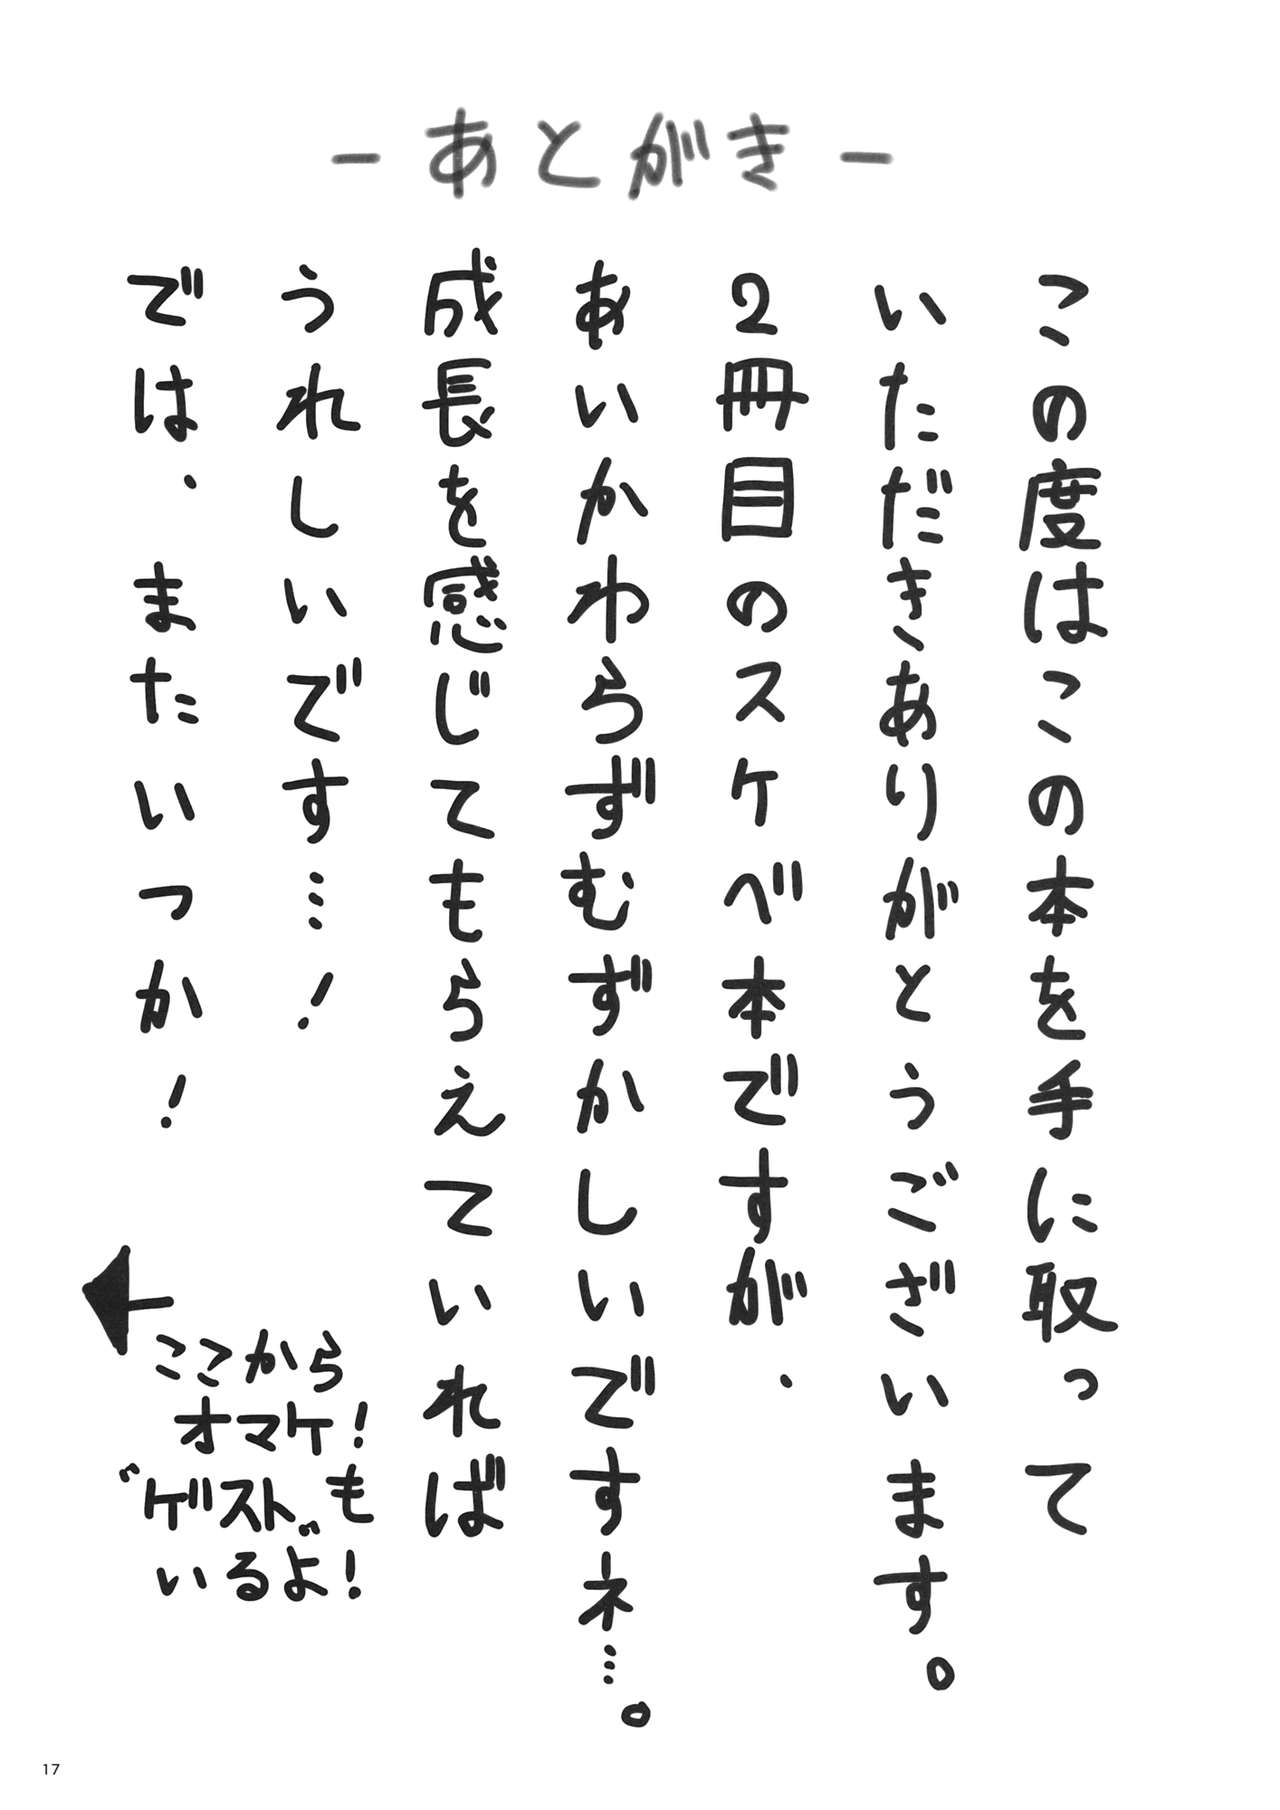 －あとがき－
この度はこの本を手に取って
いただきありがとうございます。
2冊目のスケベ本ですが、
あいかわらずむずかしいですネ…。
成長を感じてもらえていれば
うれしいです…！
では、またいつか！
ここから
オマケ！
〝ゲスト〟も
いるよ！
17